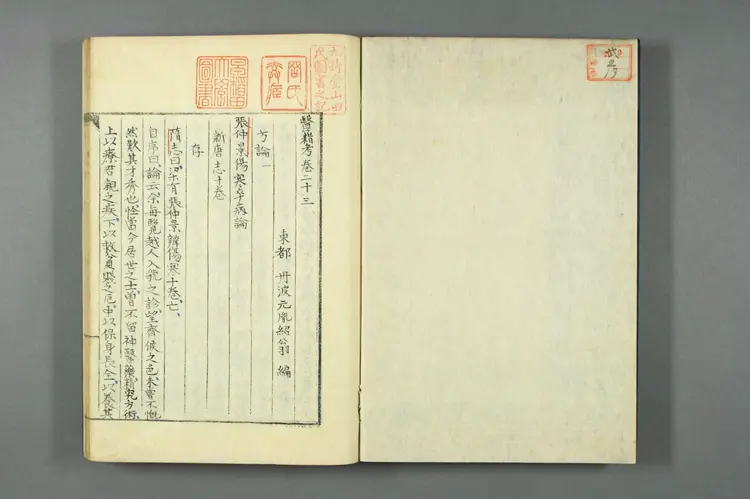 醫籍考卷二十三
東都 丹波元胤紹翁 編
方論一
張仲景傷寒卒病論
新唐志十卷
存
隋志曰梁有張仲景辨傷寒十卷亡
自序曰論云余每覽越人入虢之診望齊侯之色未嘗不慨
然歎其才秀也怪當今居世之士曾不留神醫藥精究方術
上以療君親之疾下以救貧賤之厄中以保身長全以養其